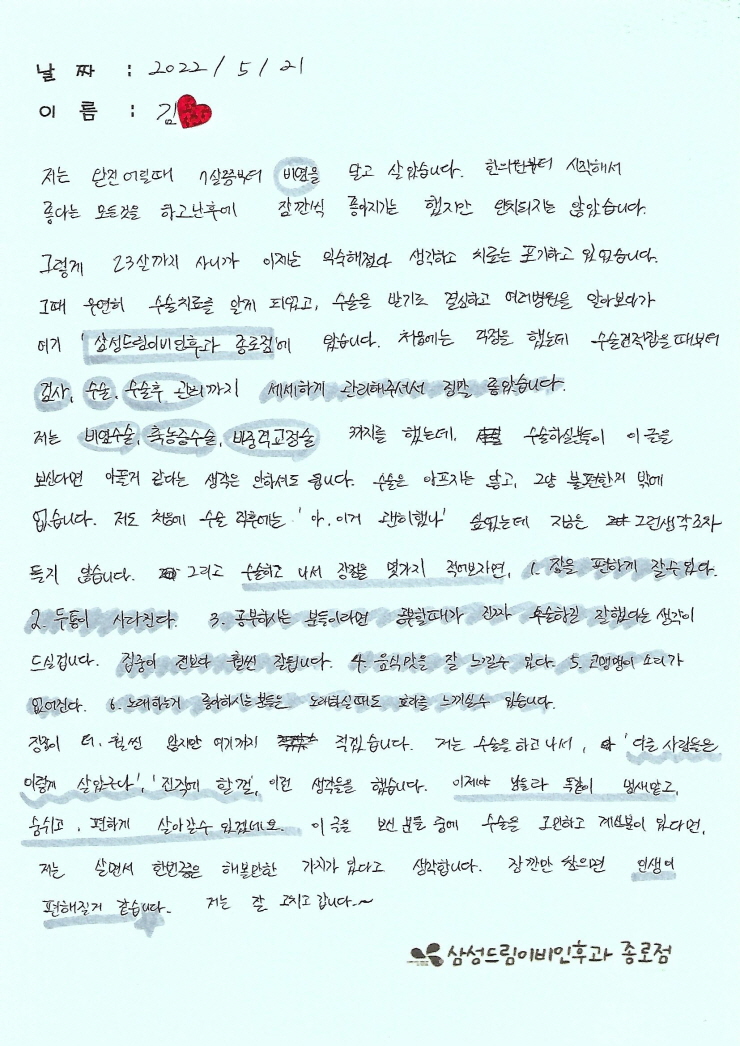 날 짜 : 2022 / 5 / 21
이 름 : 김
저는 완전 어릴때 7살쯤부터 비염을 달고 살았습니다. 한의원부터 시작해서
좋다는 모든것을 하고난후에 잠깐씩 좋아지기는 했지만 완치되지는 않았습니다.
그렇게 23살까지 사니까 이제는 익숙해졌다 생각하고 치료는 포기하고 있었습니다.
그때 우연히 수술치료를 알게 되었고, 수술을 받기로 결심하고 여러병원을 알아보다가
여기 '삼성드림이비인후과 종로점'에 왔습니다. 처음에는 걱정을 했는데 수술견적잡을때부터
검사, 수술, 수술후 관리까지 세세하게 관리해주셔서 정말 좋았습니다.
저는 비염수술, 축농증수술, 비중격교정술 까지를 했는데, 수술하실분들이 이 글을
보신다면 아플거 같다는 생각은 안하셔도 됩니다. 수술은 아프지는 않고, 그냥 불편한거 밖에
없습니다. 저도 처음에 수술 직후에는 '아, 이거 괜히했나' 싶었는데 지금은 그런생각조차
들지 않습니다. 그리고 수술하고 나서 장점을 몇가지 적어보자면, 1. 잠을 편하게 잘수있다.
2. 두통이 사라진다. 3. 공부하시는 분들이라면 공부할때가 진짜 수술하길 잘했다는 생각이
드실겁니다. 집중이 전보다 훨씬 잘됩니다. 4. 음식맛을 잘 느낄수 있다. 5. 코맹맹이 소리가
없어진다. 6. 노래하는거 좋아하시는분들은 노래하실때도 효과를 느끼실수 있습니다.
장점이 더, 훨씬 많지만 여기까지 적겠습니다. 저는 수술을 하고 나서, '다른 사람들은
이렇게 살았구나', '진작에 할껄', 이런 생각들을 했습니다. 이제야 남들과 똑같이 냄새맡고,
숨쉬고, 편하게 살아갈수 있겠네요. 이 글을 보신 분들 중에 수술은 고민하고 계신분이 있다면,
저는 살면서 한번쯤은 해볼만한 가치가 있다고 생각합니다. 잠깐만 참으면 인생이
편해질거 같습니다. 저는 잘 고치고 갑니다.~
삼성드림이비인후과 종로점